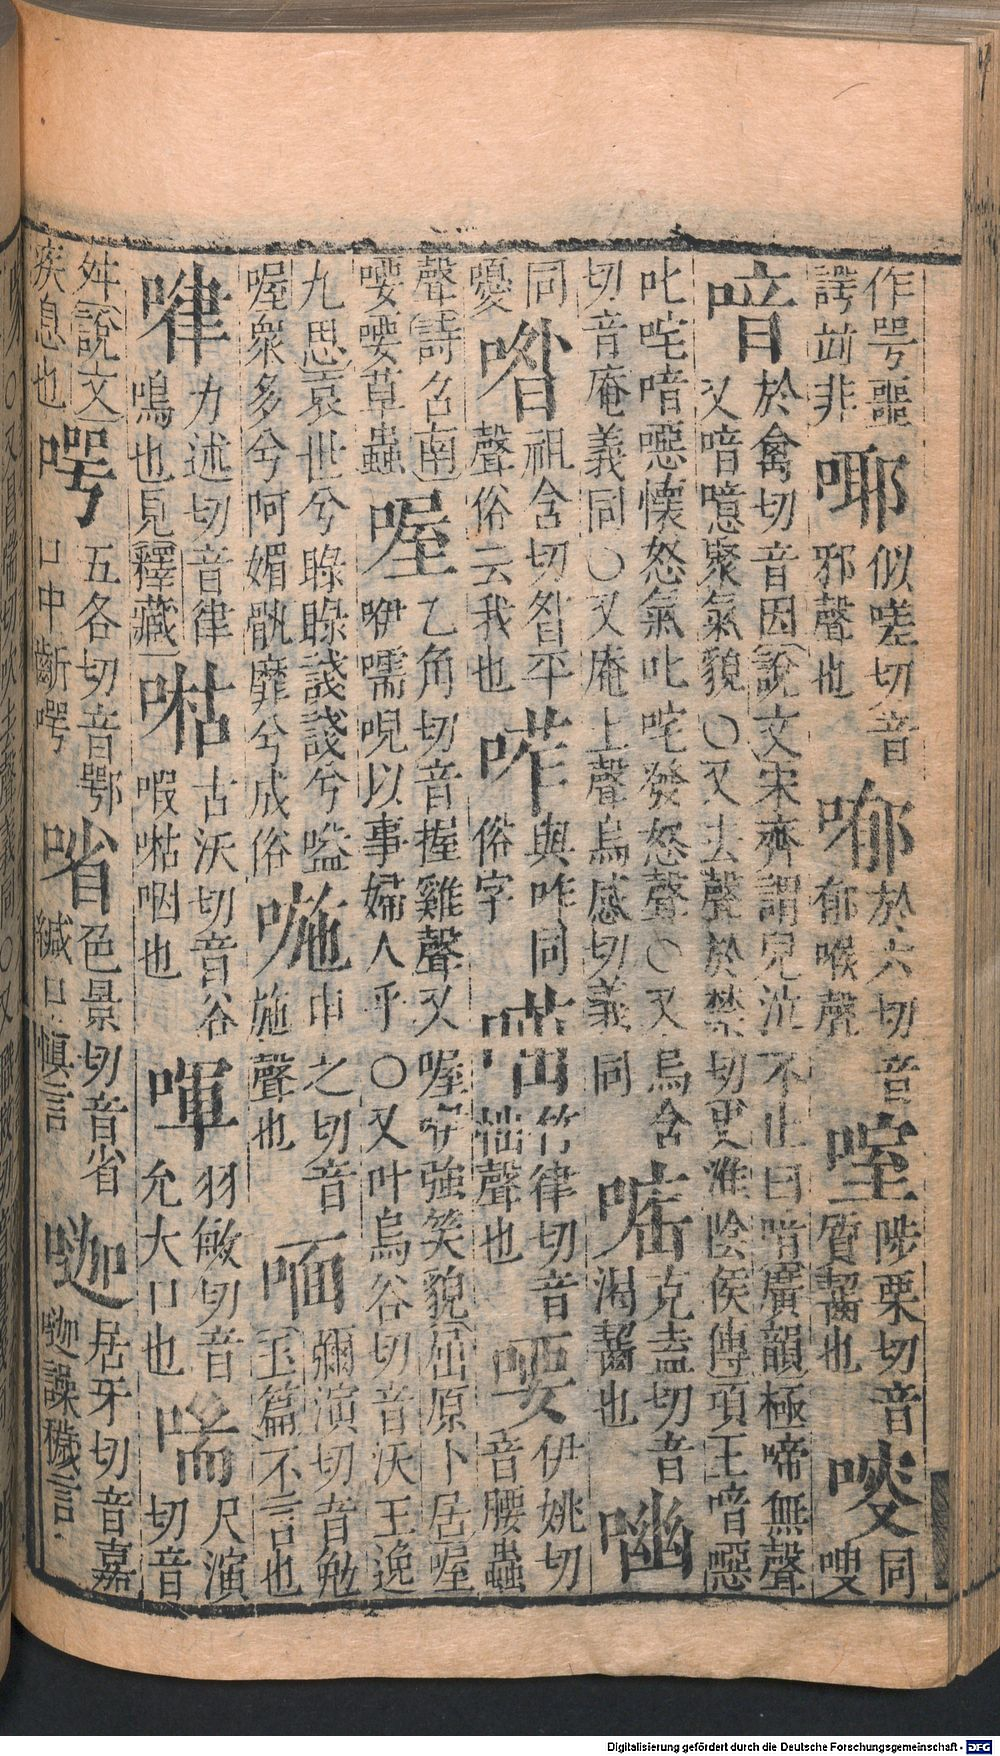 作咢噩
諤並非
㖿
似嗟切音
邪聲也
喐
於六切音
郁喉聲
㗌
陟栗切音
質齧也
㖡
同
嗖
喑
於禽切音因說文宋齊謂兒泣不止曰喑廣韻極啼無聲
又喑噫聚氣貌〇又去聲於禁切史淮陰侯傳項王喑噁
叱咤喑噁懷怒氣叱咤發怒聲〇又烏含
切音庵義同〇又庵上聲烏感切義同
克盍切音
渴齧也
同
嚘
喒
祖含切昝平
聲俗云我也
與咋同
俗字
竹律切音
怞聲也
喓
伊姚切
音腰蟲
聲詩召南
喓喓草蟲
喔
乙角切音握雞聲又喔咿強笑貌屈原卜居喔
咿嚅唲以事婦人乎〇又叶烏谷切音沃王逸
九思哀世兮睩睩諓諓兮嗌
喔衆多兮阿媚骫靡兮成俗
申之切音
施聲也
喕
彌演切音勉
玉篇不言也
力述切音律
鳴也見釋藏
古沃切音谷
㗇咽也
喗
羽敏切音
允大口也
喘
尺演
切音
舛說文
疾息也
㗁
五各切音鄂
口中齗㗁
㗂
色景切音省
緘口慎言
居牙切音嘉
誺穢言
Digitalisierung gefördert durch die Deutsche Forschungsgemeinschaft - DFG